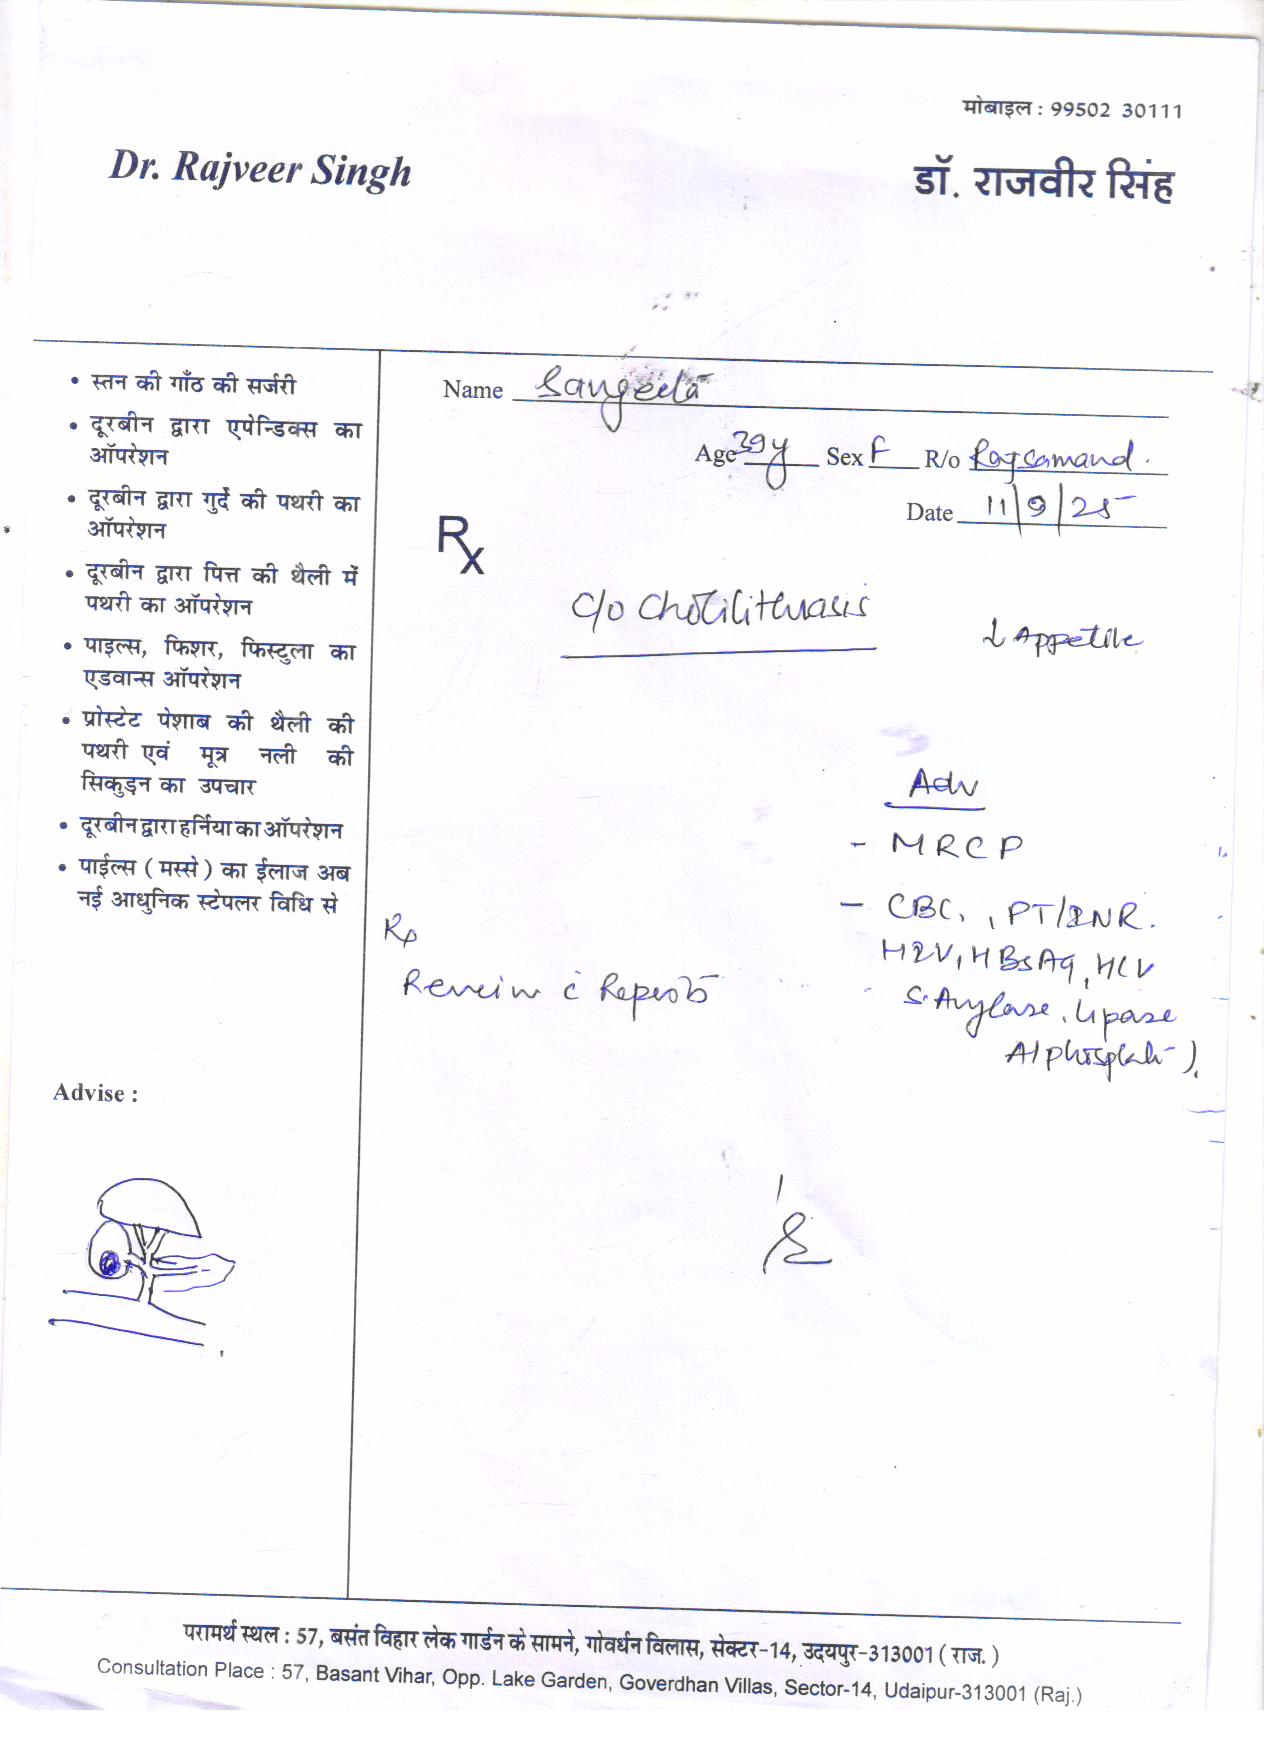 मोबाइल : 99502 30111
Dr. Rajveer Singh
डॉ. राजवीर सिंह
• स्तन की गाँठ की सर्जरी
• दूरबीन द्वारा एपेन्डिक्स का
ऑपरेशन
• दूरबीन द्वारा गुर्दे की पथरी का
ऑपरेशन
• दूरबीन द्वारा पित्त की थैली में
पथरी का ऑपरेशन
• पाइल्स, फिशर, फिस्टुला का
एडवान्स ऑपरेशन
• प्रोस्टेट पेशाब की थैली की
पथरी एवं मूत्र नली की
सिकुड़न का उपचार
• दूरबीन द्वारा हर्निया का ऑपरेशन
• पाईल्स ( मस्से ) का ईलाज अब
नई आधुनिक स्टेपलर विधि से
Advise :
Name Sangeeta
Age 39y Sex F R/o Rajsamand.
Date 11/9/25
Rx
c/o Cholilithiasis
Appetite
Adv
- MRCP
- CBC, , PT/INR.
HIV, HBsAg, HCV
S. Amylase, Lipase
Alphosphat ).
Rp
Review c Reports
परामर्थ स्थल : 57, बसंत विहार लेक गार्डन के सामने, गोवर्धन विलास, सेक्टर-14, उदयपुर-313001 ( राज. )
Consultation Place : 57, Basant Vihar, Opp. Lake Garden, Goverdhan Villas, Sector-14, Udaipur-313001 (Raj.)